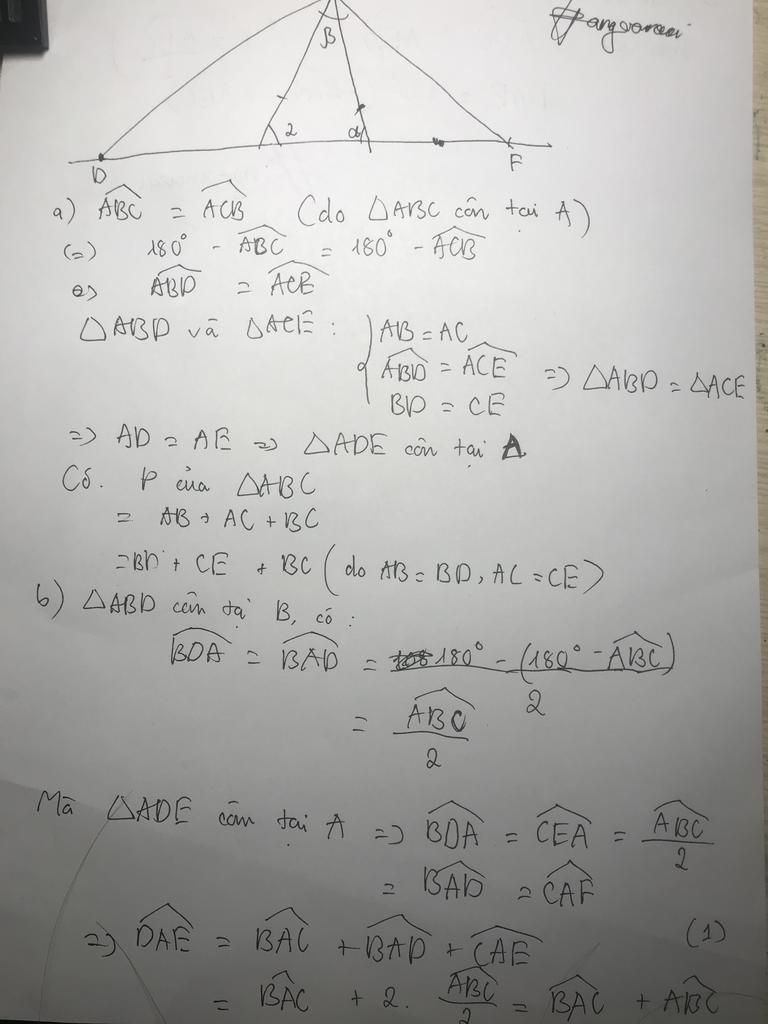 β
2 α
D F
a) ABC = ACB (do △ABC cân tại A)
(=) 180° - ABC = 180° - ACB
ABD = ACE
△ABD và △ACE : { AB = AC
ABD = ACE => △ABD = △ACE
BD = CE
=> AD = AE => △ADE cân tại A
Có. P của △ABC
= AB + AC + BC
= BD + CE + BC (do AB = BD, AC = CE)
b) △ABD cân tại B, có :
BDA = BAD = 180° - (180° - ABC)
2
= ABC
2
Mà △ADE cân tại A => BDA = CEA = ABC/2
= BAD = CAE
(1)
=> DAE = BAC + BAD + CAE
= BAC + 2. ABC/2 = BAC + ABC